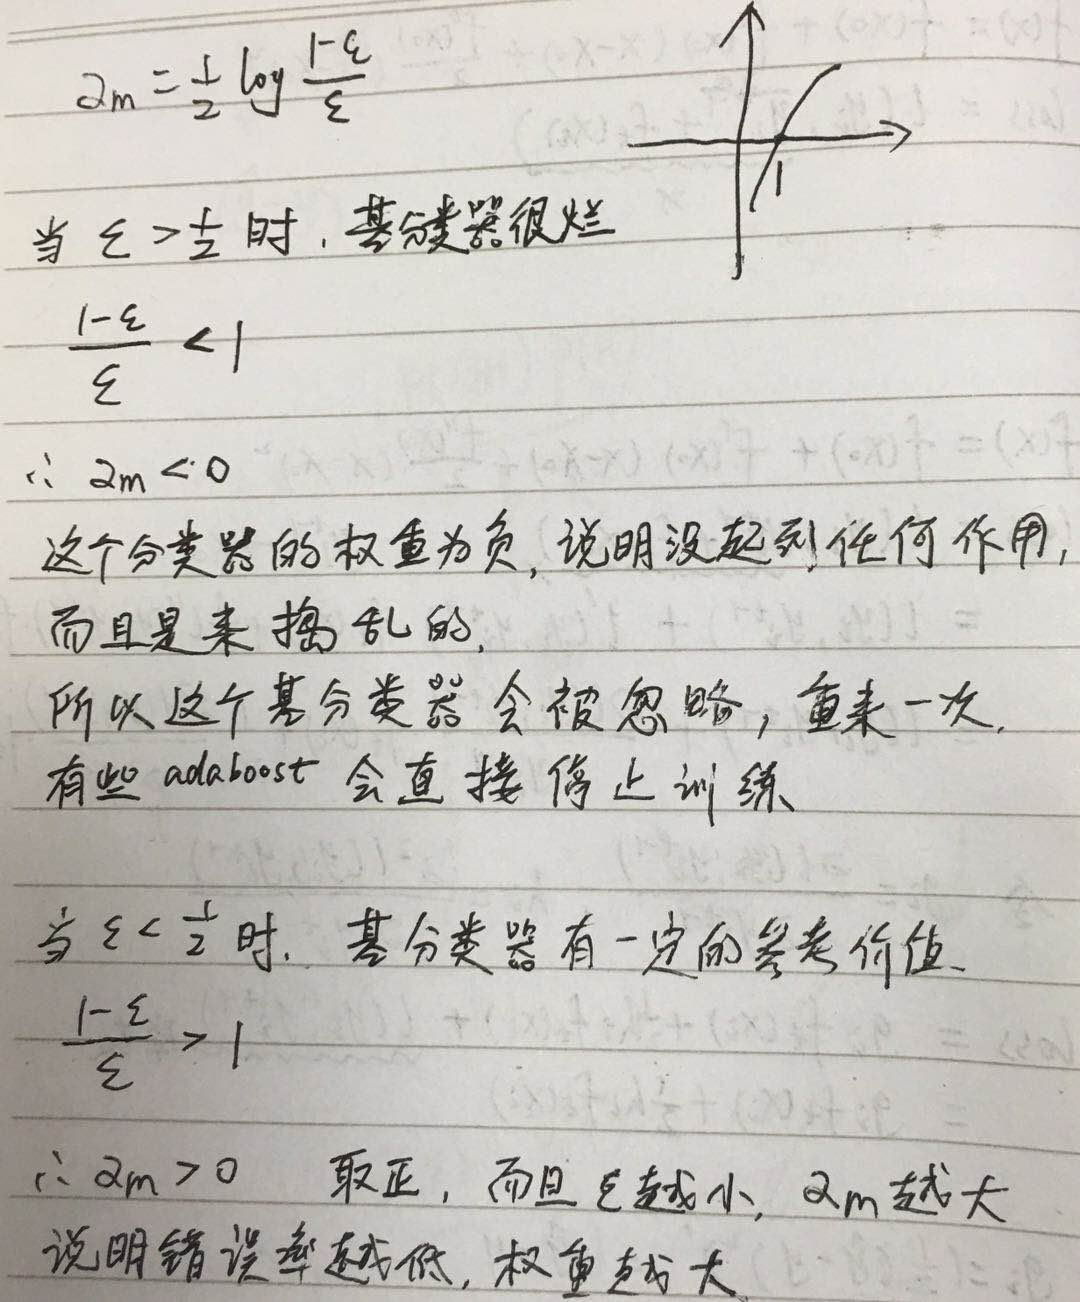 αm = 1/2 log (1-ε)/ε
1
当 ε > 1/2 时, 基分类器很烂
(1-ε)/ε < 1
∴ αm < 0
这个分类器的权重为负, 说明没起到任何作用,
而且是来捣乱的,
所以这个基分类器会被忽略, 重来一次.
有些 adaboost 会直接停止训练、
当 ε < 1/2 时. 基分类器有一定的参考价值、
(1-ε)/ε > 1
∴ αm > 0 取正, 而且 ε 越小, αm 越大
说明错误率越低, 权重越大、